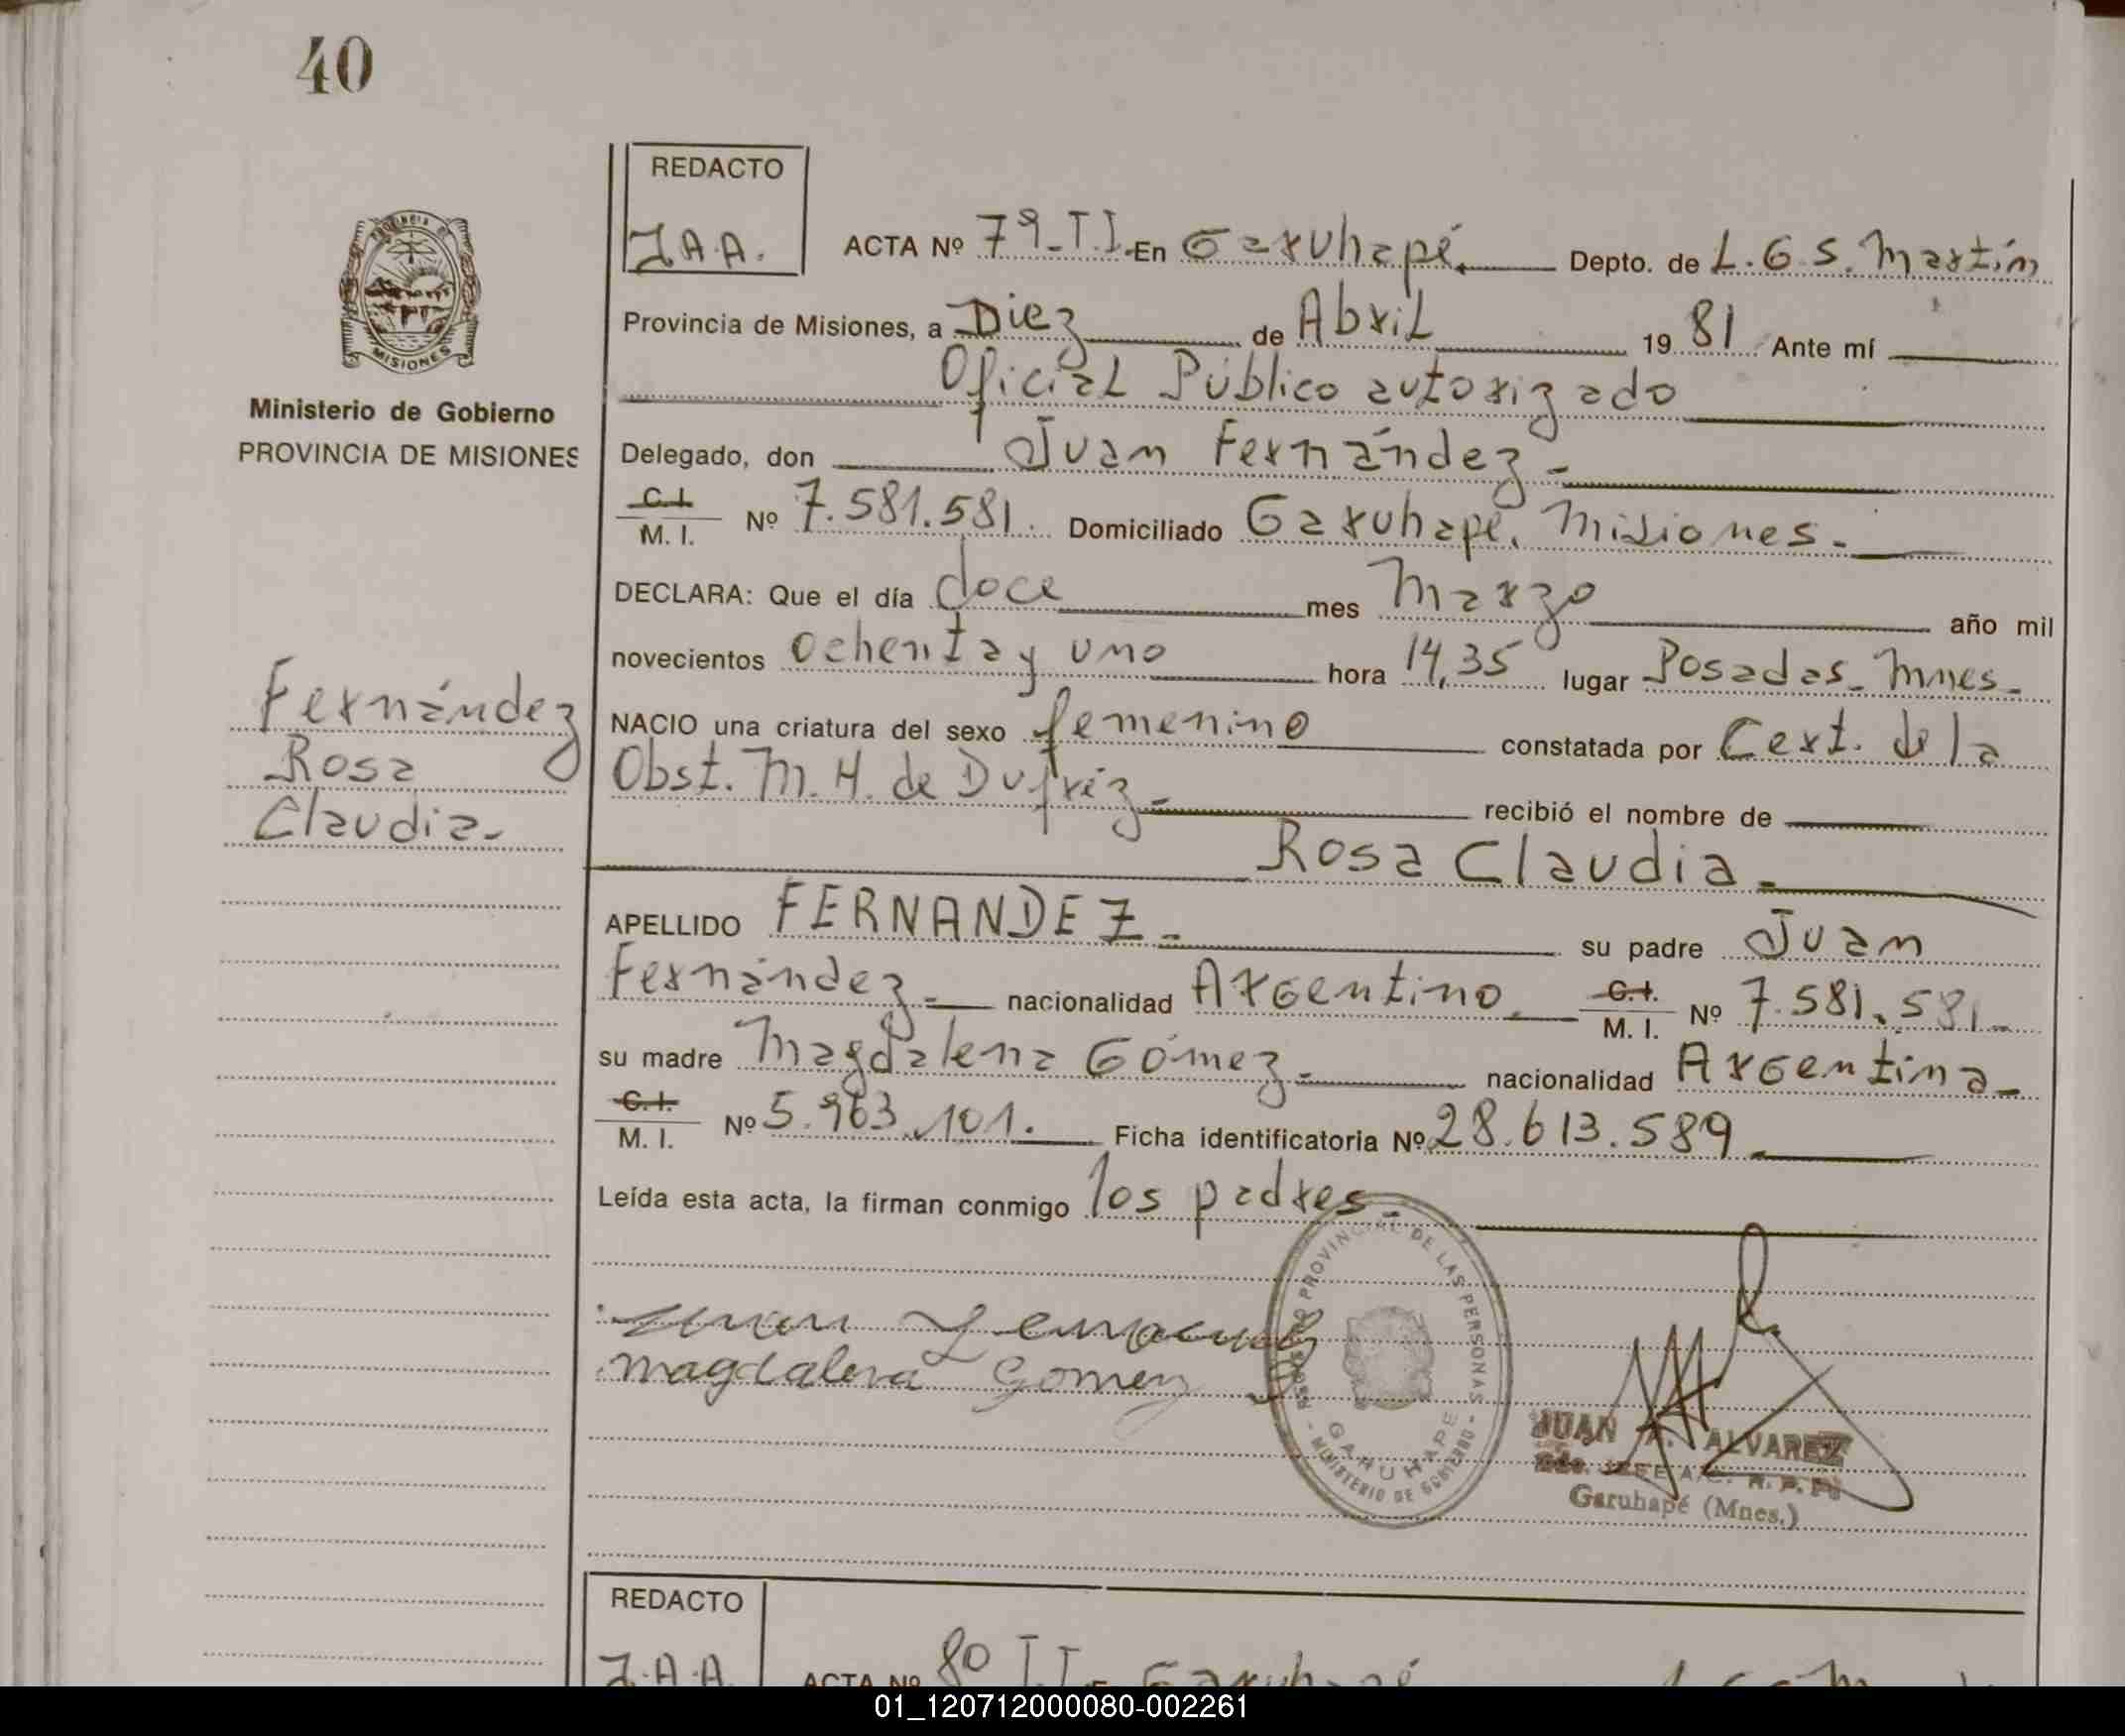 40
REDACTO
J.A.A.
ACTA Nº 79-T.I. En Garuhapé. Depto. de L.G.S. Martín
PROVINCIA DE MISIONES
Provincia de Misiones, a Diez de Abril 19 81 Ante mí
Oficial Público autorizado
Ministerio de Gobierno
PROVINCIA DE MISIONES
Delegado, don Juan Fernández-
C.I. M.I. Nº 7.581.581. Domiciliado Garuhapé, Misiones-
DECLARA: Que el día doce mes Marzo año mil
novecientos ochenta y uno hora 14,35 lugar Posadas-Mnes-
Fernández
Rosa
Claudia-
NACIO una criatura del sexo femenino constatada por Cert. de la
Obst. M.H. de Dufréz- recibió el nombre de
Rosa Claudia-
APELLIDO FERNANDEZ- su padre Juan
Fernández- nacionalidad Argentino. C.I. M.I. Nº 7.581.581-
su madre Magdalena Gómez- nacionalidad Argentina-
C.I. M.I. Nº 5.963.101. Ficha identificatoria Nº 28.613.589
Leída esta acta, la firman conmigo los padres-
REGISTRO PROVINCIAL DE LAS PERSONAS - MINISTERIO DE GOBIERNO -
GARUHAPE
Juan Fernandez
magdalena Gomez
JUAN A. ALVAREZ
JEFE
Garuhapé (Mnes.)
REDACTO
J.A.A.
ACTA Nº 80 T.I. Garuhapé
01_120712000080-002261